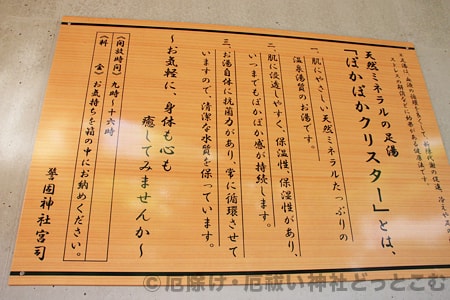 天然ミネラルの足湯
「ぽかぽかクリスター」とは、
一、肌にやさしい天然ミネラルたっぷりの
温泉湯質のお湯です。
二、肌に浸透しやすく、保温性、保湿性があり、
いつまでもぽかぽか感が持続します。
三、お湯自体に抗菌力があり、常に循環させて
いますので、清潔な水質を保っています。
〜お気軽に、身体も心も
癒してみませんか〜
〈開放時間〉九時〜十六時
〈料 金〉お気持ちを箱の中にお納めください。
警固神社宮司
©厄除け・厄祓い神社どっとこむ